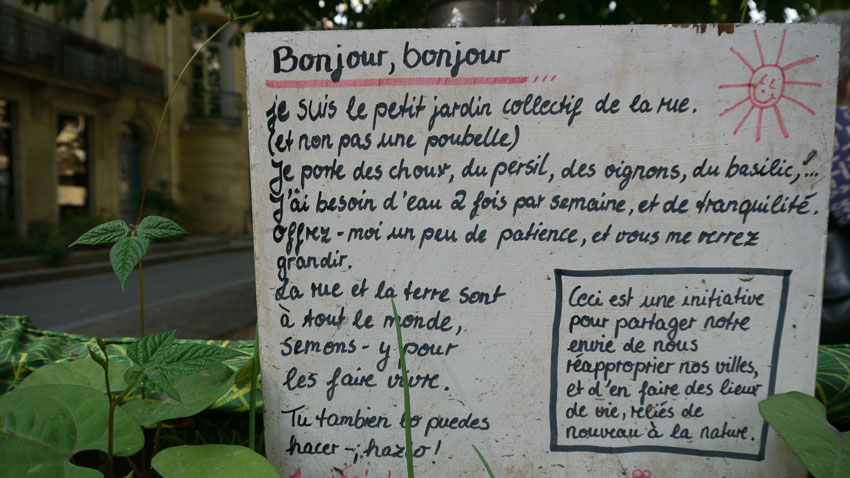 Bonjour, bonjour
je suis le petit jardin collectif de la rue.
(et non pas une poubelle)
Je porte des choux, du persil, des oignons, du basilic,!...
J'ai besoin d'eau 2 fois par semaine, et de tranquilité.
offrez-moi un peu de patience, et vous me verrez
grandir.
La rue et la terre sont
à tout le monde,
semons-y pour
les faire vivre.
Tu tambien lo puedes
hacer -¡ hazlo !
Ceci est une initiative
pour partager notre
envie de nous
réapproprier nos villes,
et d'en faire des lieux
de vie, reliés de
nouveau à la nature.